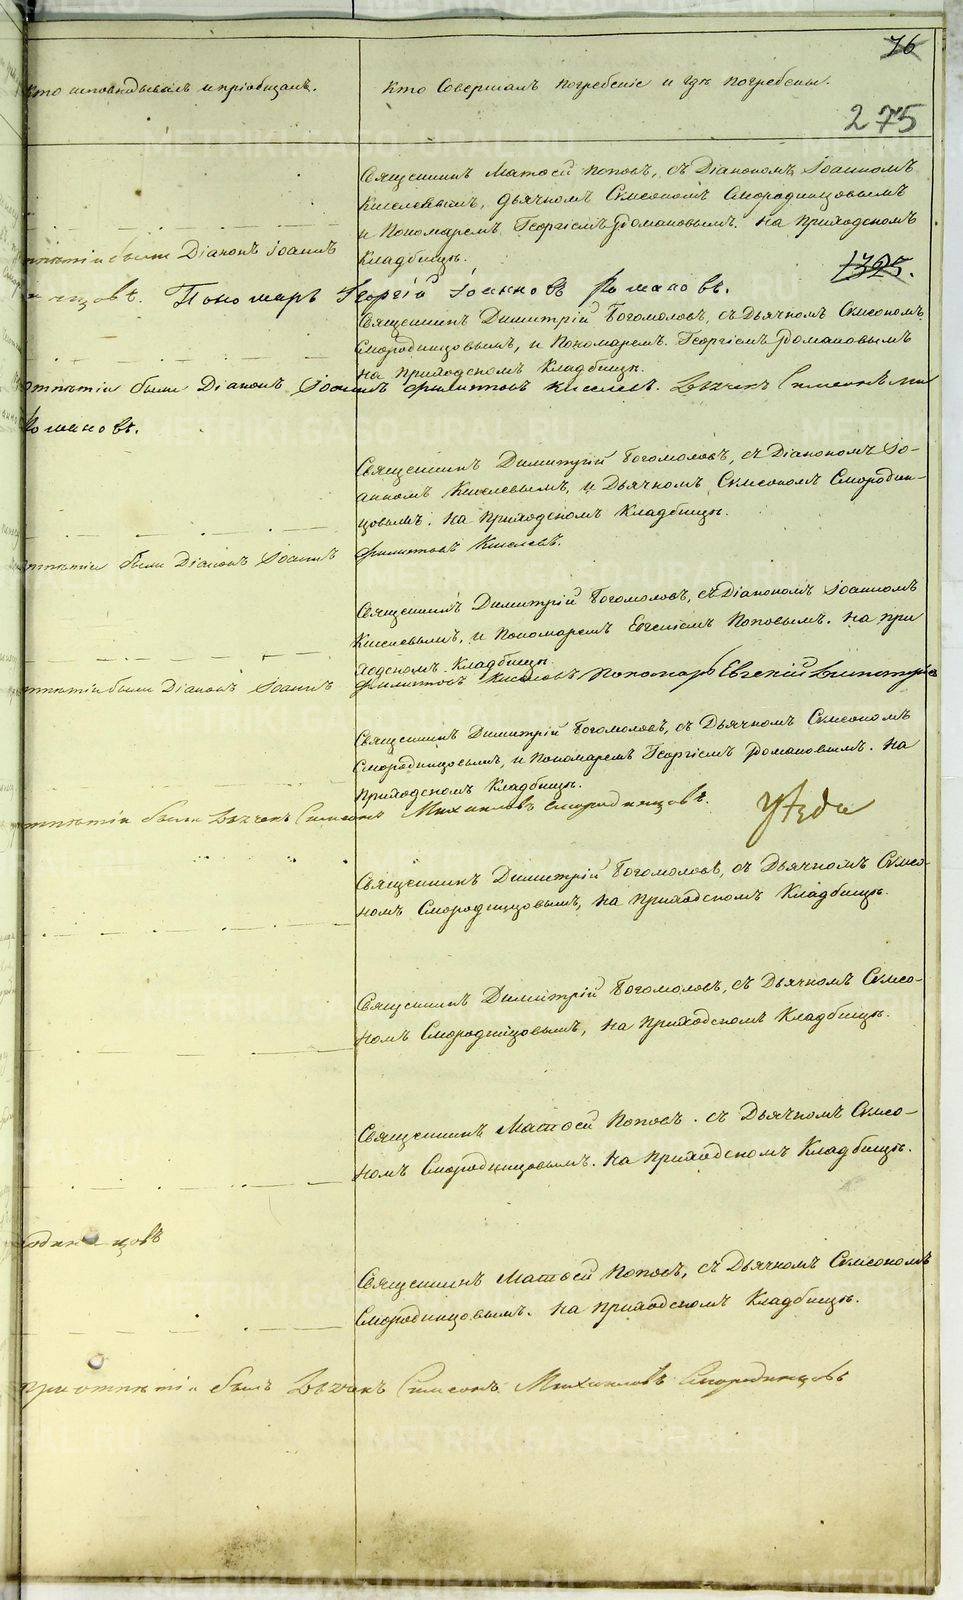 76
Кто исповѣдывалъ и пріобщалъ.
Кто Совершалъ погребеніе и гдѣ погребены.
275
Священникъ Матѳей Поповъ, съ Діакономъ Іоанномъ
Киселевымъ, Дьячкомъ Симеономъ Смородинцовымъ
и Пономаремъ Георгіемъ Романовымъ. На Приходскомъ
Кладбищѣ.
были Діаконъ Іоаннъ
Пономарь Георгій Іоанновъ Романовъ.
Священникъ Димитрій Богомоловъ, съ Дьячкомъ Симеономъ
Смородинцовымъ, и Пономаремъ Георгіемъ Романовымъ
На Приходскомъ Кладбищѣ.
отпѣтіи были Діаконъ Іоаннъ Филиповъ Киселевъ. Дьячекъ Симеонъ
Романовъ.
Священникъ Димитрій Богомоловъ, съ Діакономъ Іо-
анномъ Киселевымъ, и Дьячкомъ Симеономъ Смородин-
цовымъ. На Приходскомъ Кладбищѣ.
отпѣтіи были Діаконъ Іоаннъ Филиповъ Киселевъ.
Священникъ Димитрій Богомоловъ, съ Діакономъ Іоанномъ
Киселевымъ, и Пономаремъ Евгеніемъ Поповымъ. На При
ходскомъ Кладбищѣ.
отпѣтіи были Діаконъ Іоаннъ Филиповъ Киселевъ Пономарь Евгеній
Священникъ Димитрій Богомоловъ, съ Дьячкомъ Симеономъ
Смородинцовымъ, и Пономаремъ Георгіемъ Романовымъ. На
Приходскомъ Кладбищѣ.
отпѣтіи были Дьячекъ Симеонъ Михаиловъ Смородинцовъ.
Священникъ Димитрій Богомоловъ, съ Дьячкомъ Симео-
номъ Смородинцовымъ, На Приходскомъ Кладбищѣ.
Священникъ Димитрій Богомоловъ, съ Дьячкомъ Симео-
номъ Смородинцовымъ, На Приходскомъ Кладбищѣ.
Священникъ Матѳей Поповъ. съ Дьячкомъ Симео-
номъ Смородинцовымъ. На Приходскомъ Кладбищѣ.
родинцовъ
Священникъ Матѳей Поповъ, съ Дьячкомъ Симеономъ
Смородинцовымъ. На Приходскомъ Кладбищѣ.
при отпѣтіи былъ Дьячекъ Симеонъ Михаиловъ Смородинцовъ
METRIKI.GASO-URAL.RU